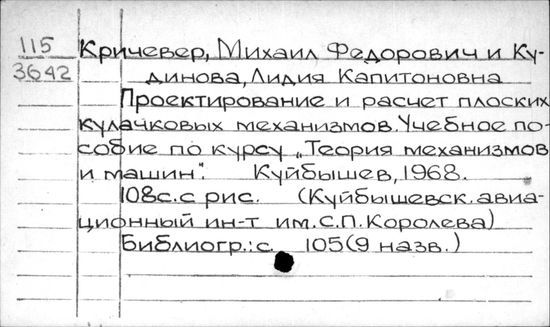 115
3642
Кричевер, Михаил Федорович и Ку-
динова, Лидия Капитоновна
Проектирование и расчет плоских
кулачковых механизмов. Учебное по-
собие по курсу „Теория механизмов
и машин". Куйбышев, 1968.
108с. с рис. (Куйбышевск. авиа-
ционный ин-т им. С.П. Королева)
Библиогр.: с. 105 (9 назв.)